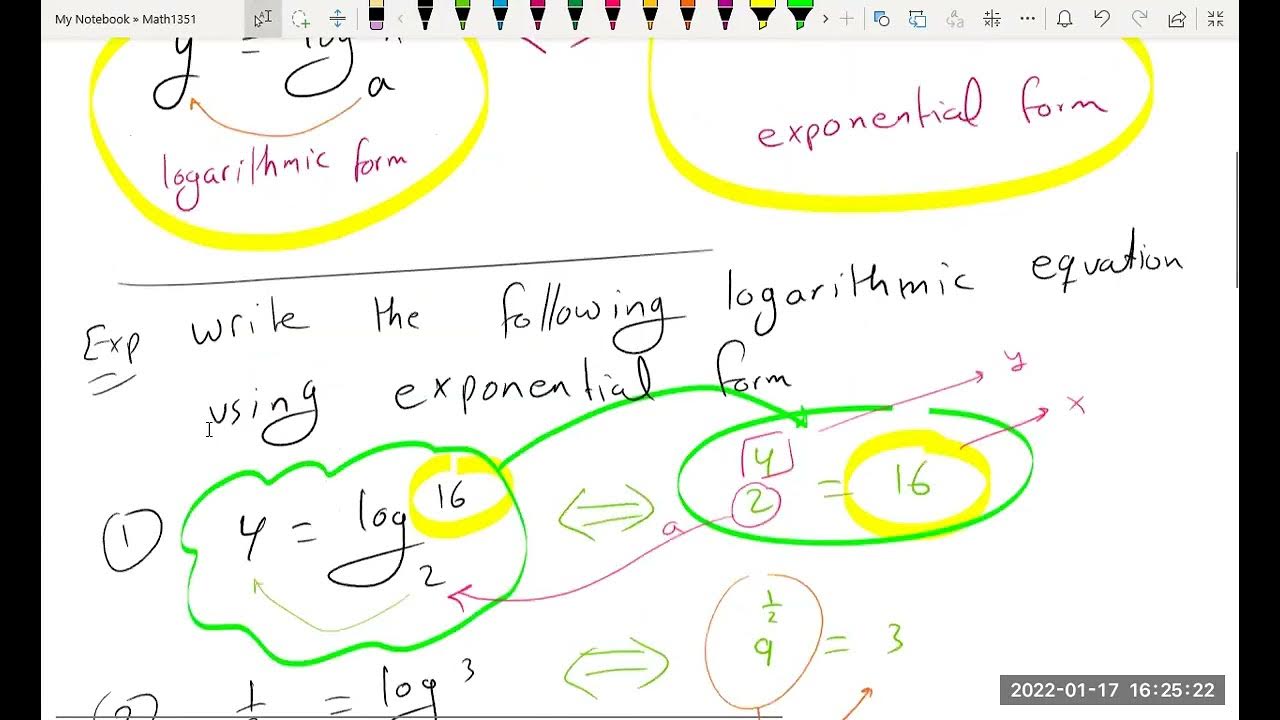 My Notebook » Math1351
y = log
a
logarithmic form
exponential form
Exp write the following logarithmic equation
using exponential form
y
x
① 4 = log₂ 16 ⇔ 2⁴ = 16
a
1/2 = log 3 ⇔ 9^(1/2) = 3
2022-01-17 16:25:22